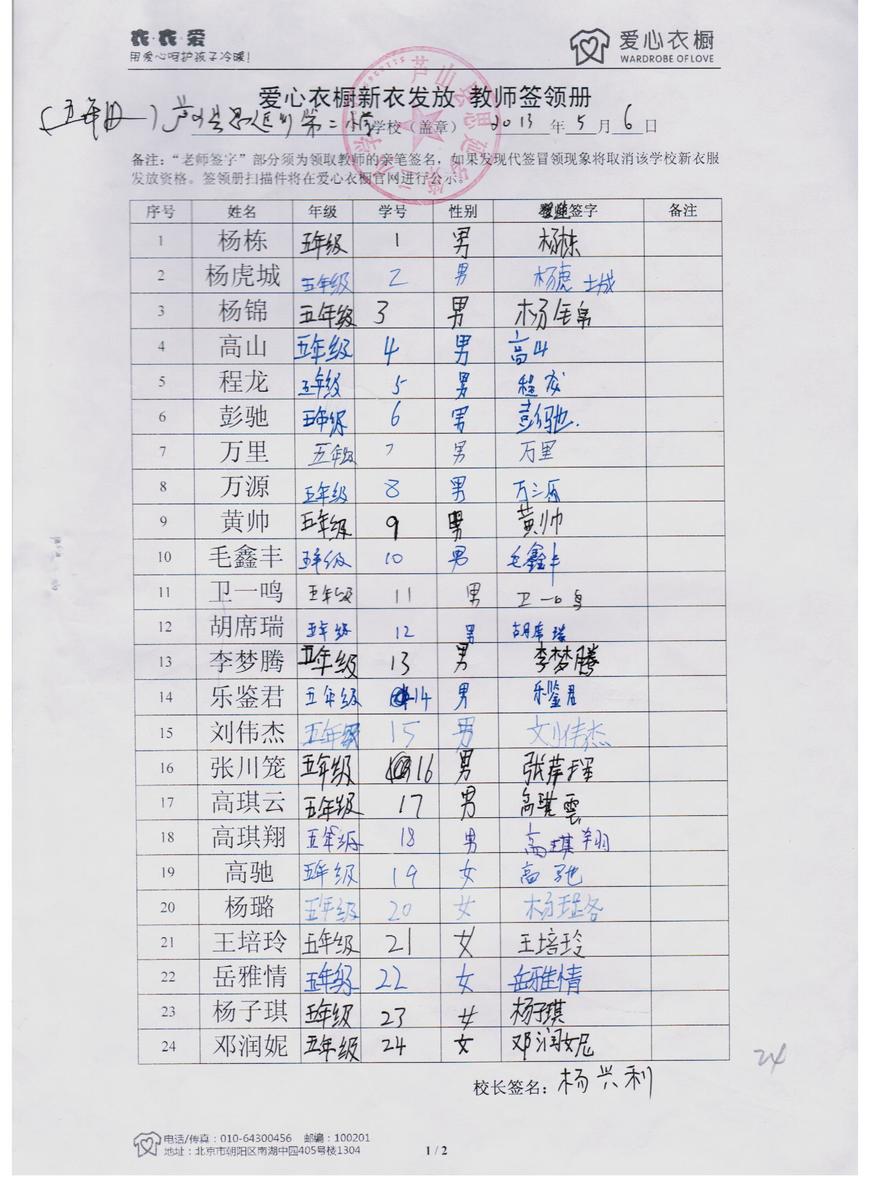 衣·衣·爱
用爱心呵护孩子冷暖!
爱心衣橱
WARDROBE OF LOVE
爱心衣橱新衣发放 教师签领册
(五年级)芦山县思延乡第二小学 学校(盖章) 2013 年 5 月 6 日
备注:“老师签字”部分须为领取教师的亲笔签名,如果发现代签冒领现象将取消该学校新衣服
发放资格。签领册扫描件将在爱心衣橱官网进行公示。
序号 姓名 年级 学号 性别 签字 备注
1 杨栋 五年级 1 男 杨栋
2 杨虎城 五年级 2 男 杨虎城
3 杨锦 五年级 3 男 杨锦
4 高山 五年级 4 男 高山
5 程龙 五年级 5 男 程龙
6 彭驰 五年级 6 男 彭驰.
7 万里 五年级 7 男 万里
8 万源 五年级 8 男 万源
9 黄帅 五年级 9 男 黄帅
10 毛鑫丰 五年级 10 男 毛鑫丰
11 卫一鸣 五年级 11 男 卫一鸣
12 胡席瑞 五年级 12 男 胡席瑞
13 李梦腾 五年级 13 男 李梦腾
14 乐鉴君 五年级 14 男 乐鉴君
15 刘伟杰 五年级 15 男 刘伟杰
16 张川笼 五年级 16 男
17 高琪云 五年级 17 男 高琪雲
18 高琪翔 五年级 18 男 高琪翔
19 高驰 五年级 19 女 高驰
20 杨璐 五年级 20 女 杨璐
21 王培玲 五年级 21 女 王培玲
22 岳雅情 五年级 22 女 岳雅情
23 杨子琪 五年级 23 女 杨子琪
24 邓润妮 五年级 24 女 邓润妮
24
校长签名: 杨兴利
电话/传真:010-64300456 邮编:100201
地址:北京市朝阳区南湖中园405号楼1304
1 / 2